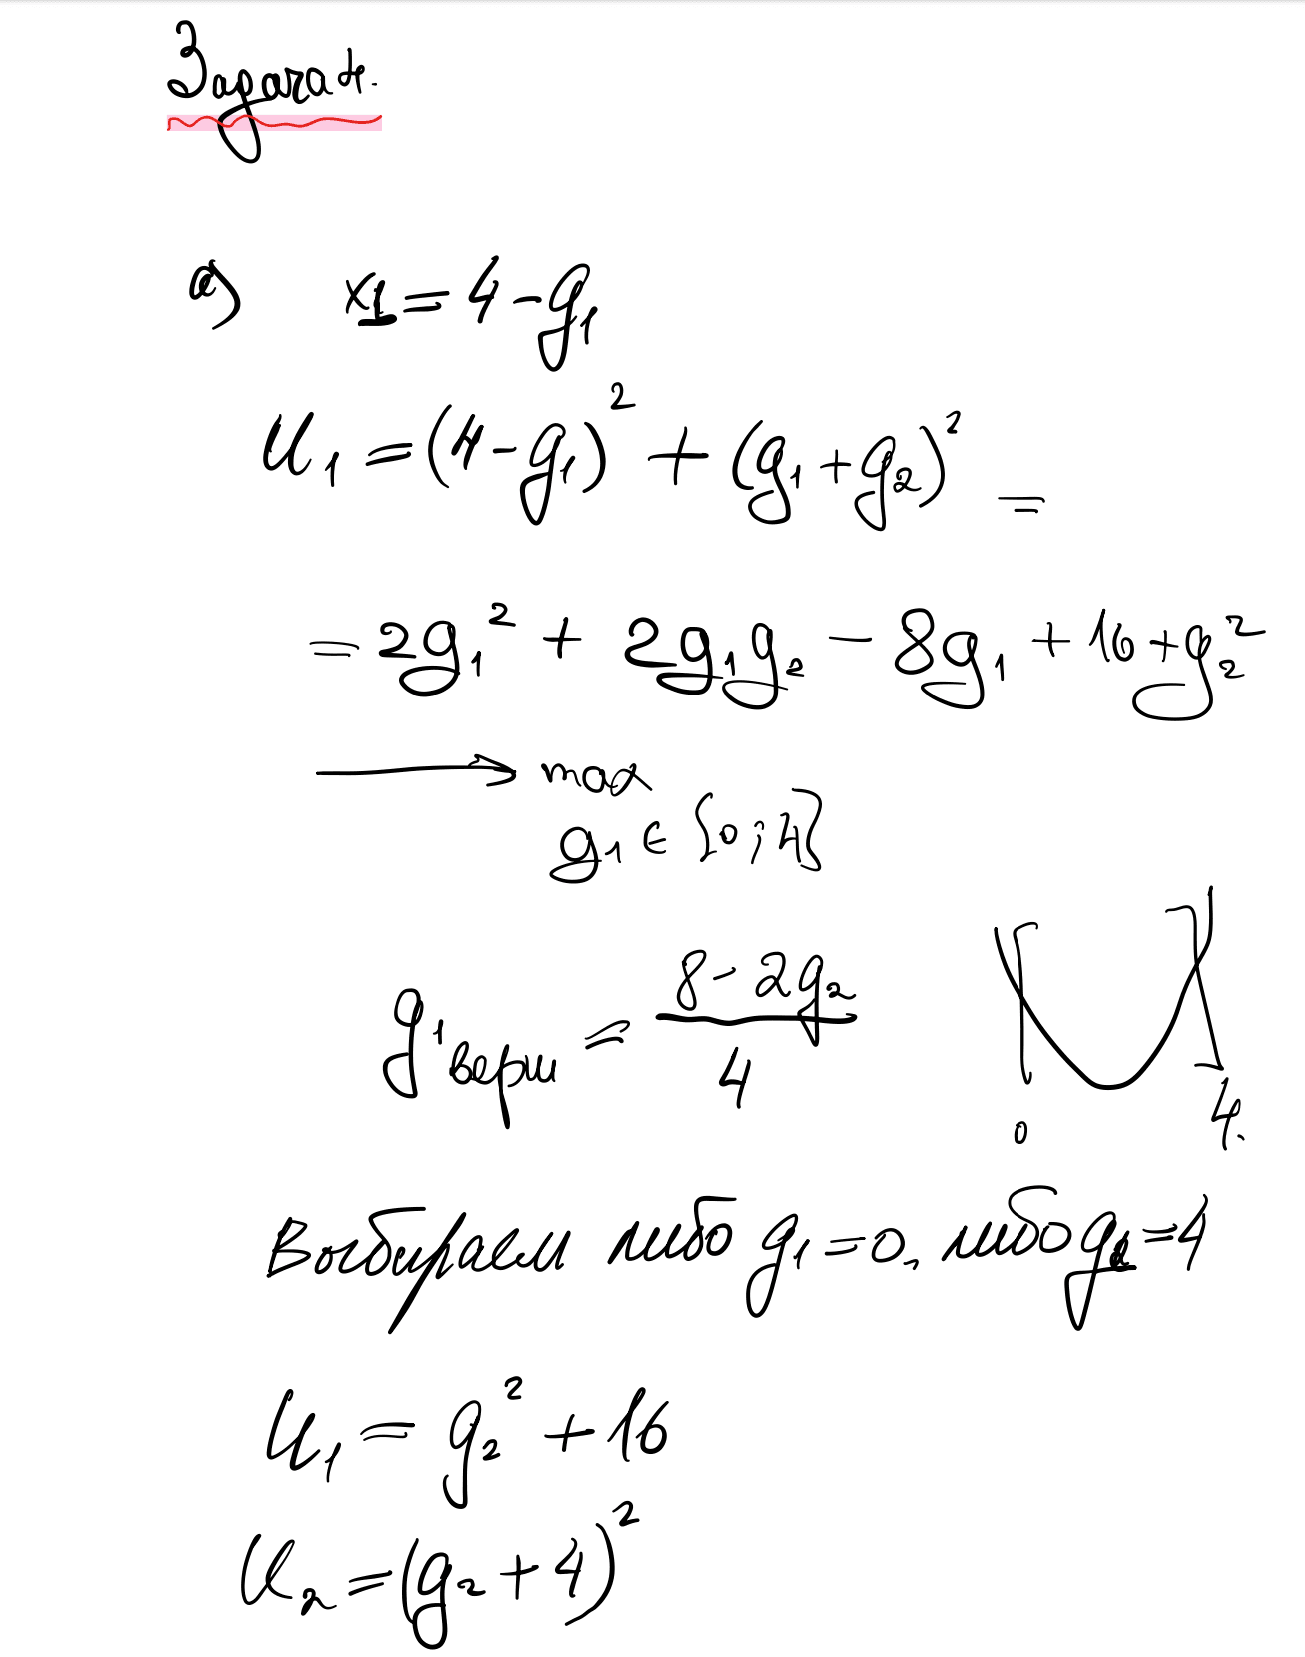 Задача 4.
a) x1 = 4 - g₁
U₁ = (4 - g₁)² + (g₁ + g₂)² =
= 2g₁² + 2g₁g₂ - 8g₁ + 16 + g₂²
→ max
g₁ ∈ [0; 4]
g₁ верш = (8 - 2g₂)/4
0 4.
Выбираем либо g₁ = 0, либо g₁ = 4
U₁ = g₂² + 16
U₂ = (g₂ + 4)²